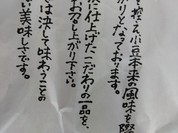 を控え小豆本来の風味を際
がりとなっております。
に仕上げたこだわりの一品を、
お召し上がり下さい。
は決して味わうことの
い美味しさです。